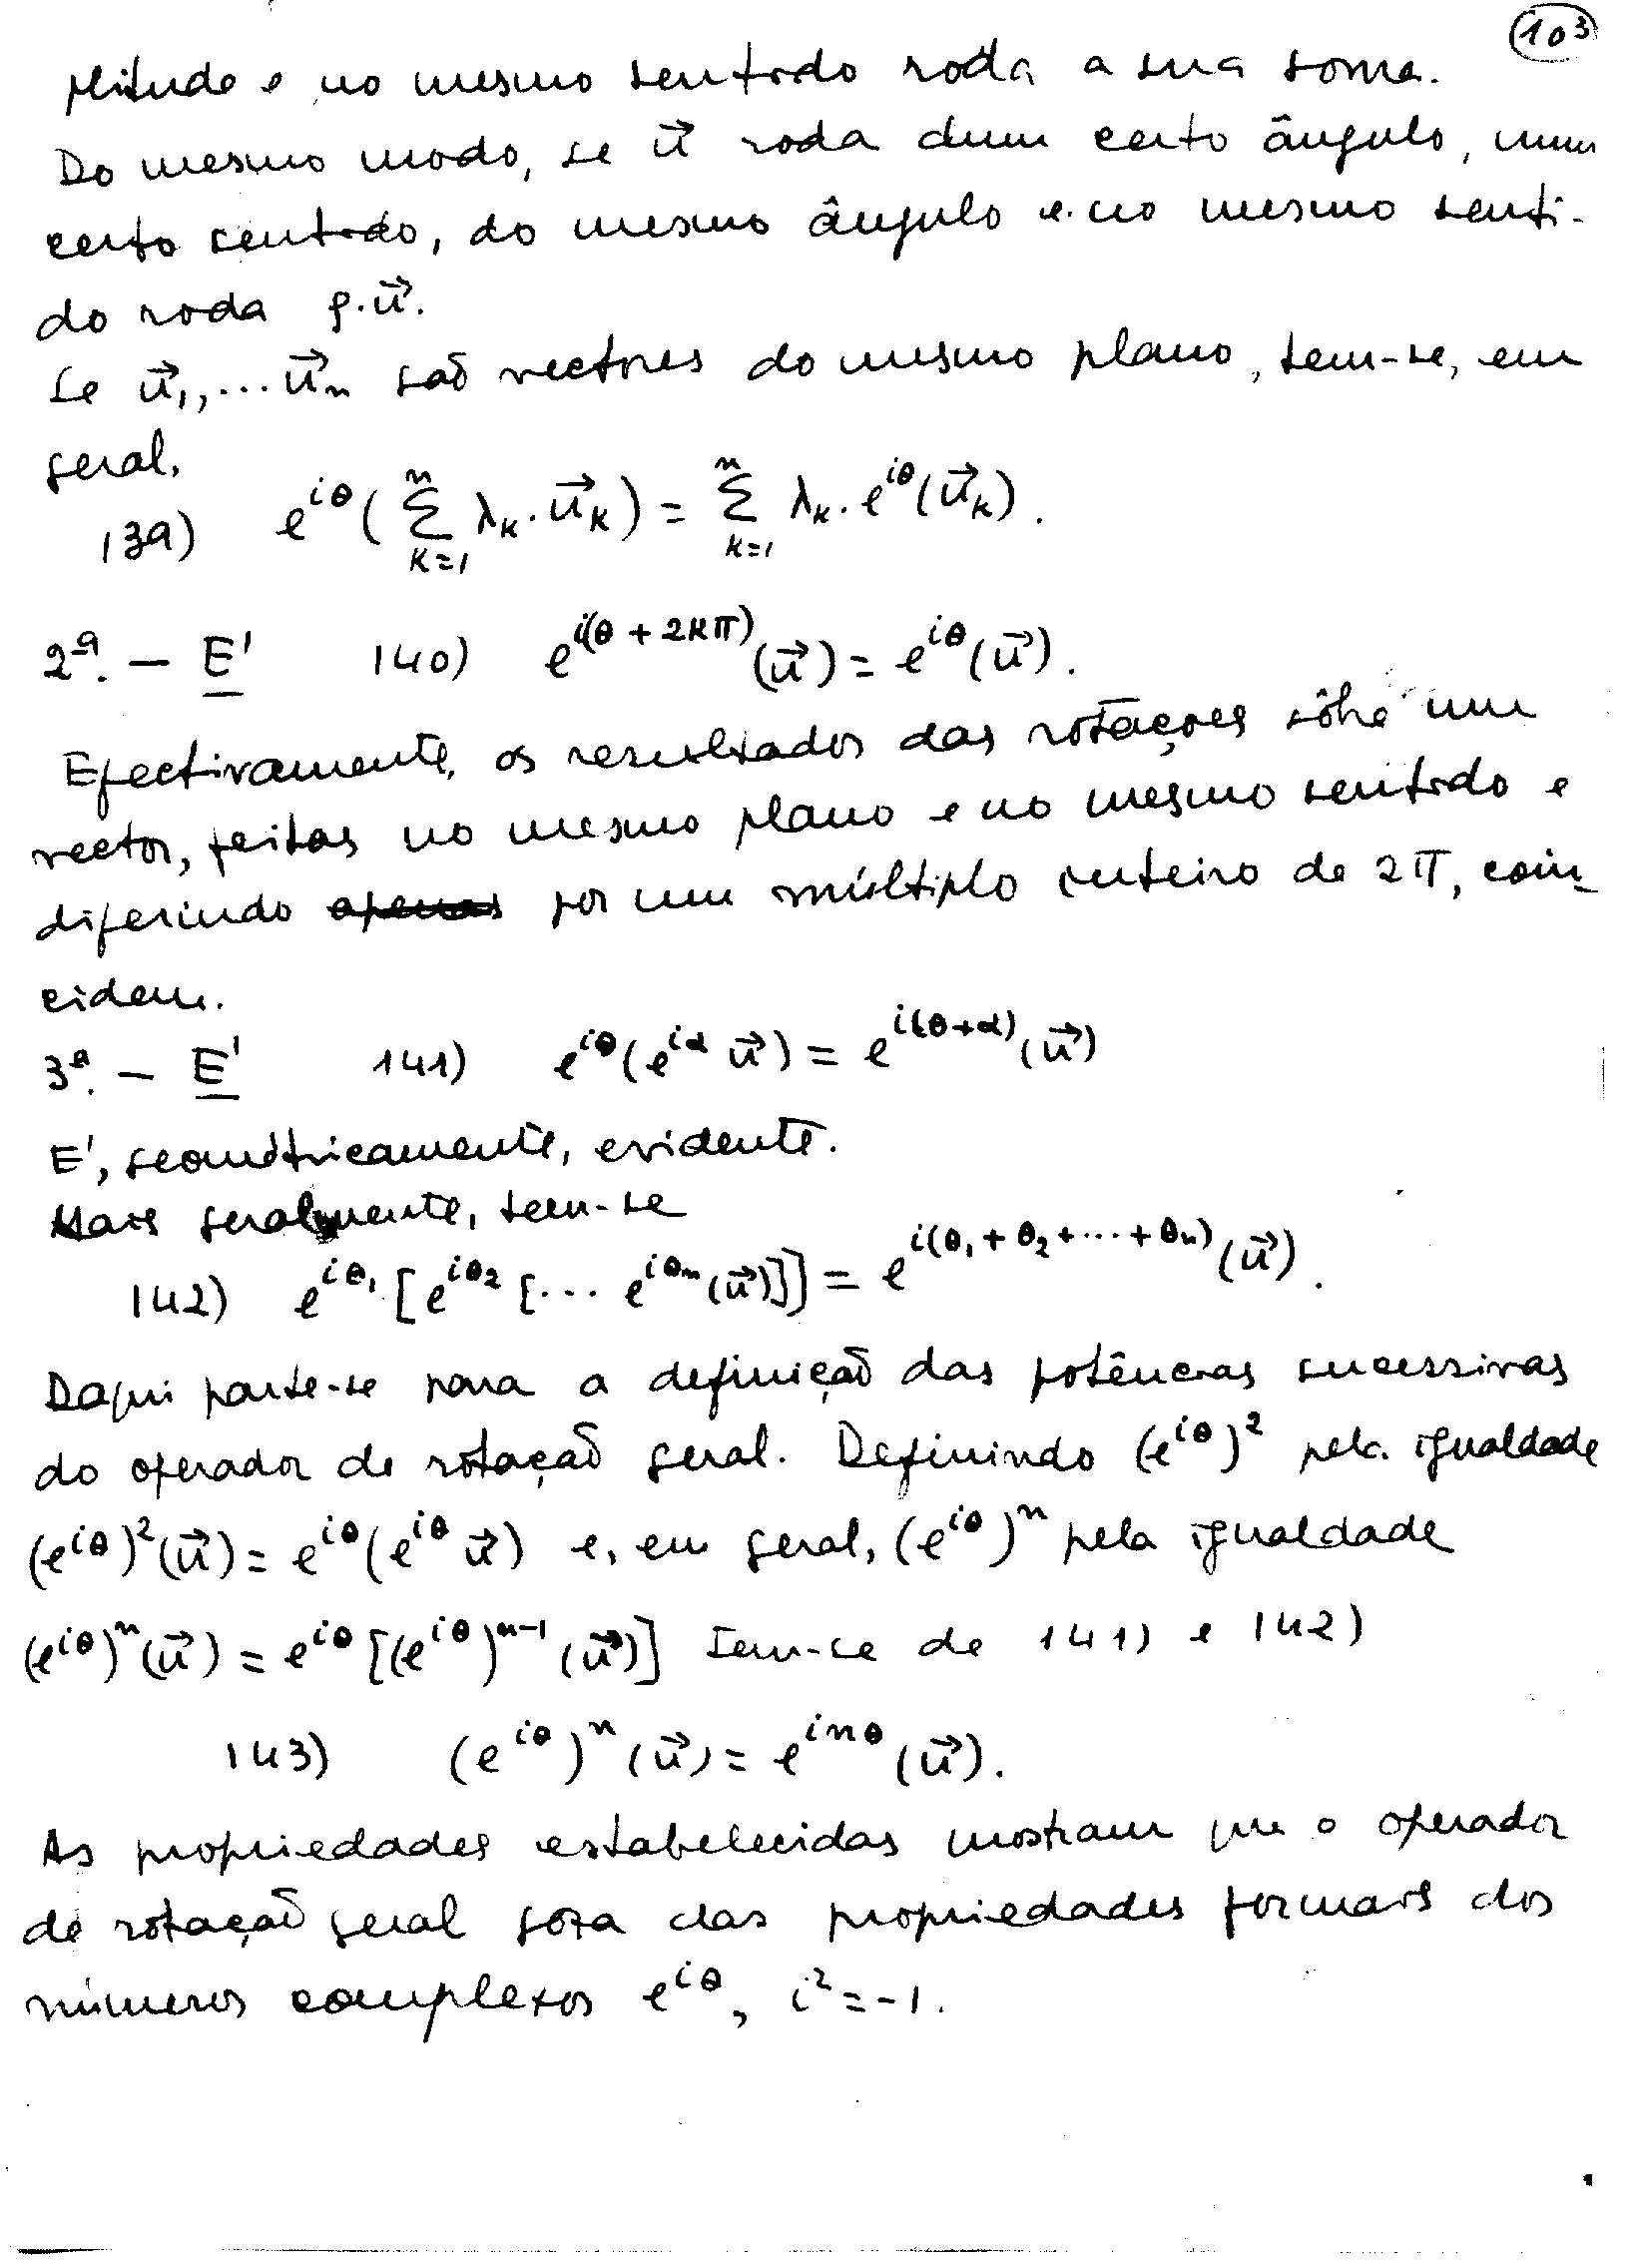 103
plitude e no mesmo sentido roda a sua soma.
Do mesmo modo, se u⃗ roda dum certo ângulo, num
certo sentido, do mesmo ângulo e no mesmo senti-
do roda ρ.u⃗.
Se u⃗₁,...u⃗ₙ são vectores do mesmo plano, tem-se, em
geral,
139) e^{iθ}(∑_{k=1}^{n} λₖ.u⃗ₖ) = ∑_{k=1}^{n} λₖ.e^{iθ}(u⃗ₖ).
2ª. — E' 140) e^{i(θ+2kπ)}(u⃗) = e^{iθ}(u⃗).
Efectivamente, os resultados das rotações sôbre um
vector, feitas no mesmo plano e no mesmo sentido e
diferindo apenas por um múltiplo inteiro de 2π, coin-
cidem.
3ª. — E' 141) e^{iθ}(e^{iα} u⃗) = e^{i(θ+α)}(u⃗)
E', geométricamente, evidente.
Mais geralmente, tem-se
142) e^{iθ₁}[e^{iθ₂}[... e^{iθₙ}(u⃗)]] = e^{i(θ₁+θ₂+...+θₙ)}(u⃗).
Daqui parte-se para a definição das potências sucessivas
do operador de rotação geral. Definindo (e^{iθ})² pela igualdade
(e^{iθ})²(u⃗) = e^{iθ}(e^{iθ} u⃗) e, em geral, (e^{iθ})ⁿ pela igualdade
(e^{iθ})ⁿ(u⃗) = e^{iθ}[(e^{iθ})^{n-1}(u⃗)] tem-se de 141) e 142)
143) (e^{iθ})ⁿ(u⃗) = e^{inθ}(u⃗).
As propriedades estabelecidas mostram que o operador
de rotação geral goza das propriedades formais dos
números complexos e^{iθ}, i²=-1.